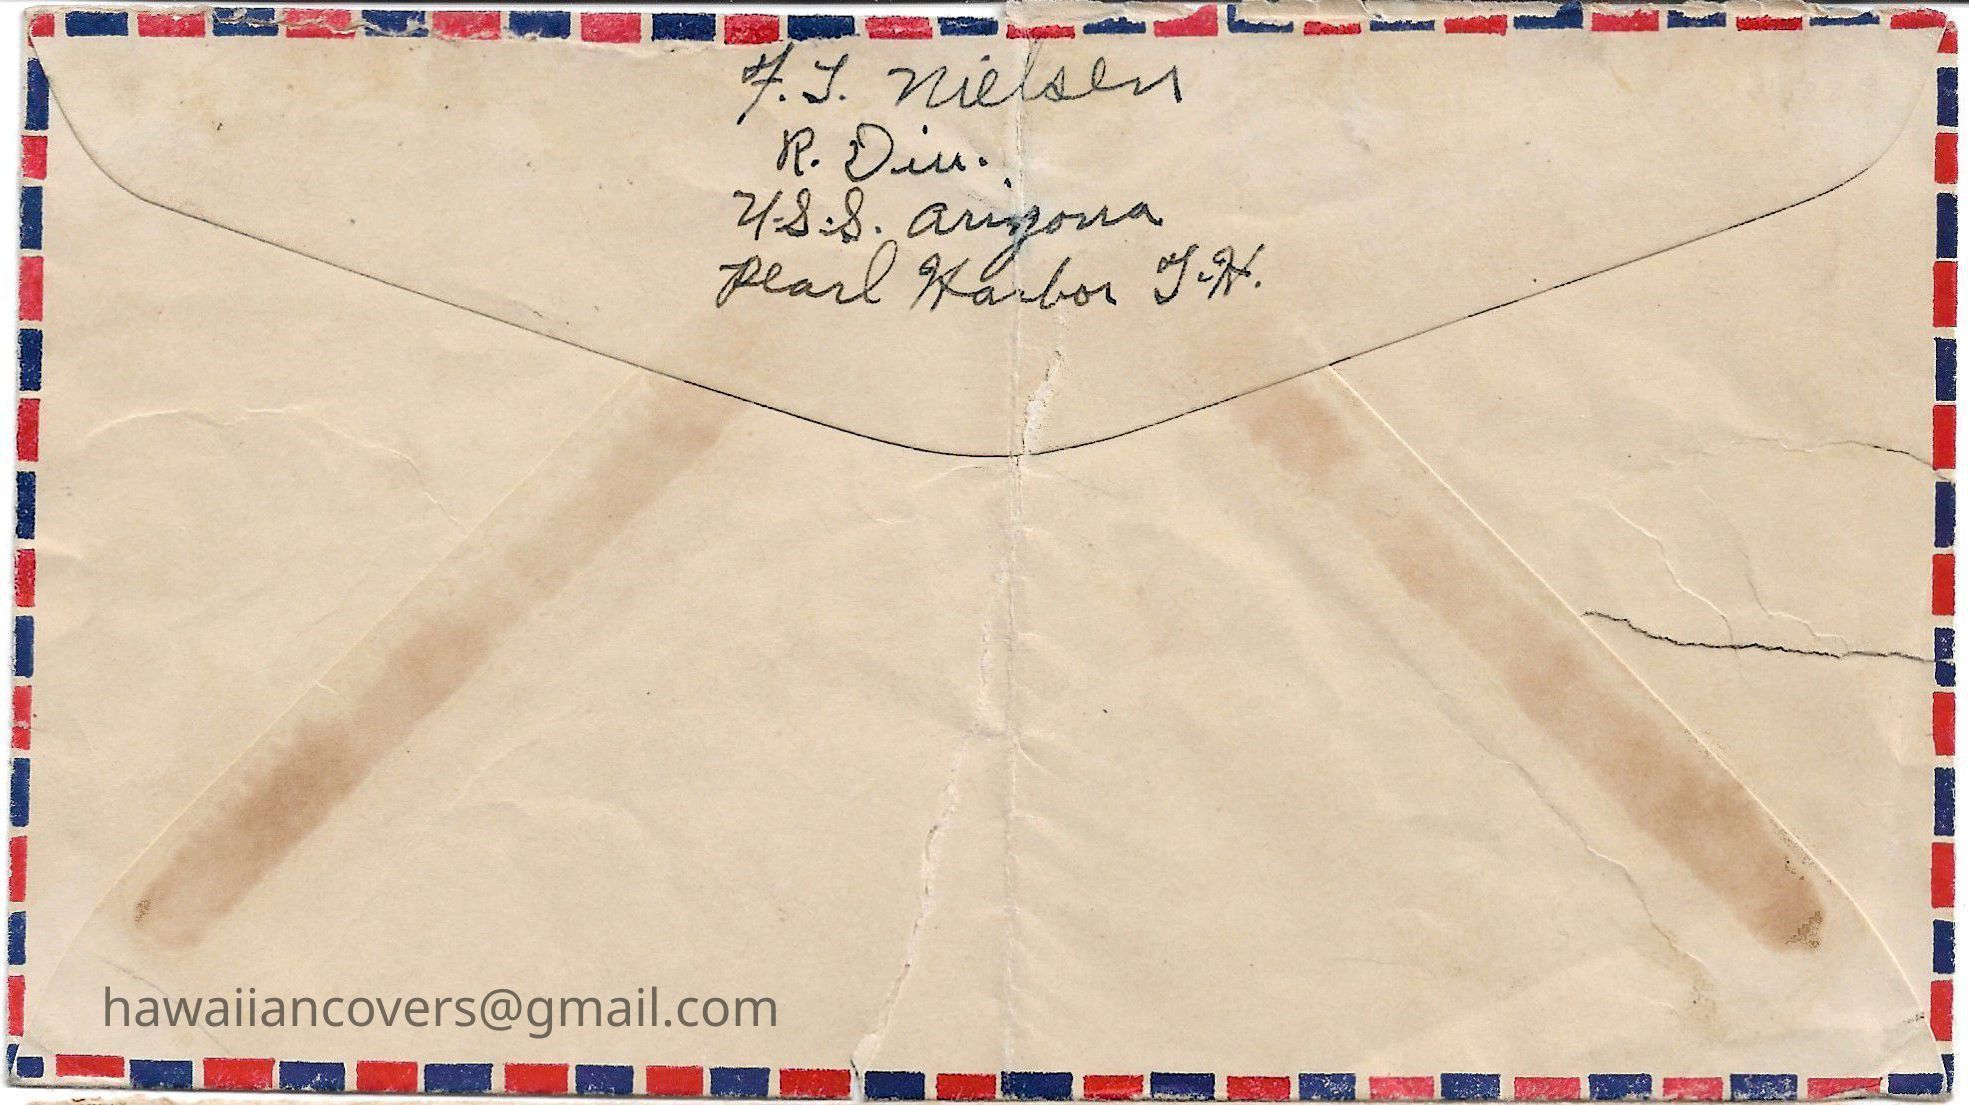 F. T. Nielsen
R. Div.
U.S.S. Arizona
Pearl Harbor T.H.
hawaiiancovers@gmail.com